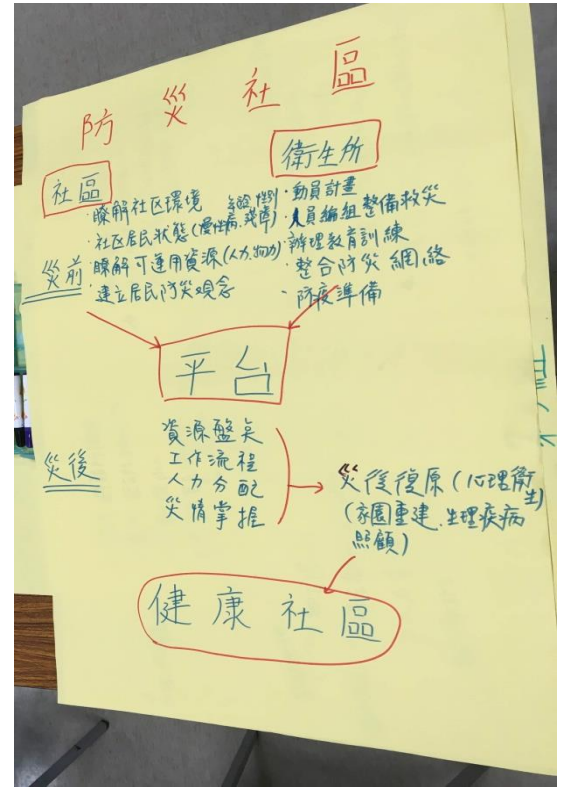 防災社區
社區
·瞭解社区環境 年齡、性別
·社区居民狀態(慢性病、殘障)
·瞭解可運用資源(人力、物力)
·建立居民防災观念
衛生所
·動員計畫
·人員編組整備救災
·辦理教育訓練
·整合防災網絡
·防疫準備
災前
平台
災後
資源盤点
工作流程
人力分配
災情掌握
災後復原(心理衛生)
(家園重建、生理疾病
照顧)
健康社區